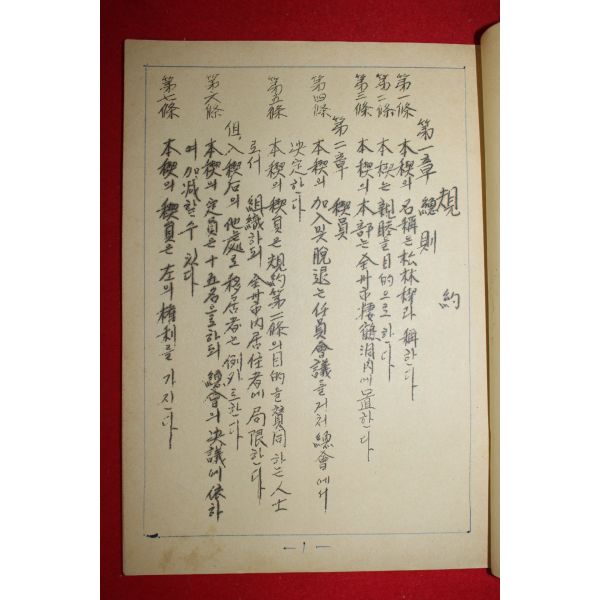 規約
第一章 總則
第一條 本稧의 名稱는 松林稧라 稱한다
第二條 本稧는 親睦을 目的으로 한다
第三條 本稧의 本部는 全州市 棲鶴洞內에 置한다
第二章 稧員
第四條 本稧의 加入 및 脫退는 任員會議를 거처 總會에서
決定한다
第五條 本稧의 稧員은 規約 第二條의 目的을 贊同하는 人士
로서 組織하되 全州市內 居住者에 局限한다
但, 入稧后의 他處로 移居者는 例外로 한다
第六條 本稧의 定員은 十五名으로 하되 總會의 决議에 依하
여 加減할 수 있다
第七條 本稧의 稧員은 左의 權利를 가지다
-1-